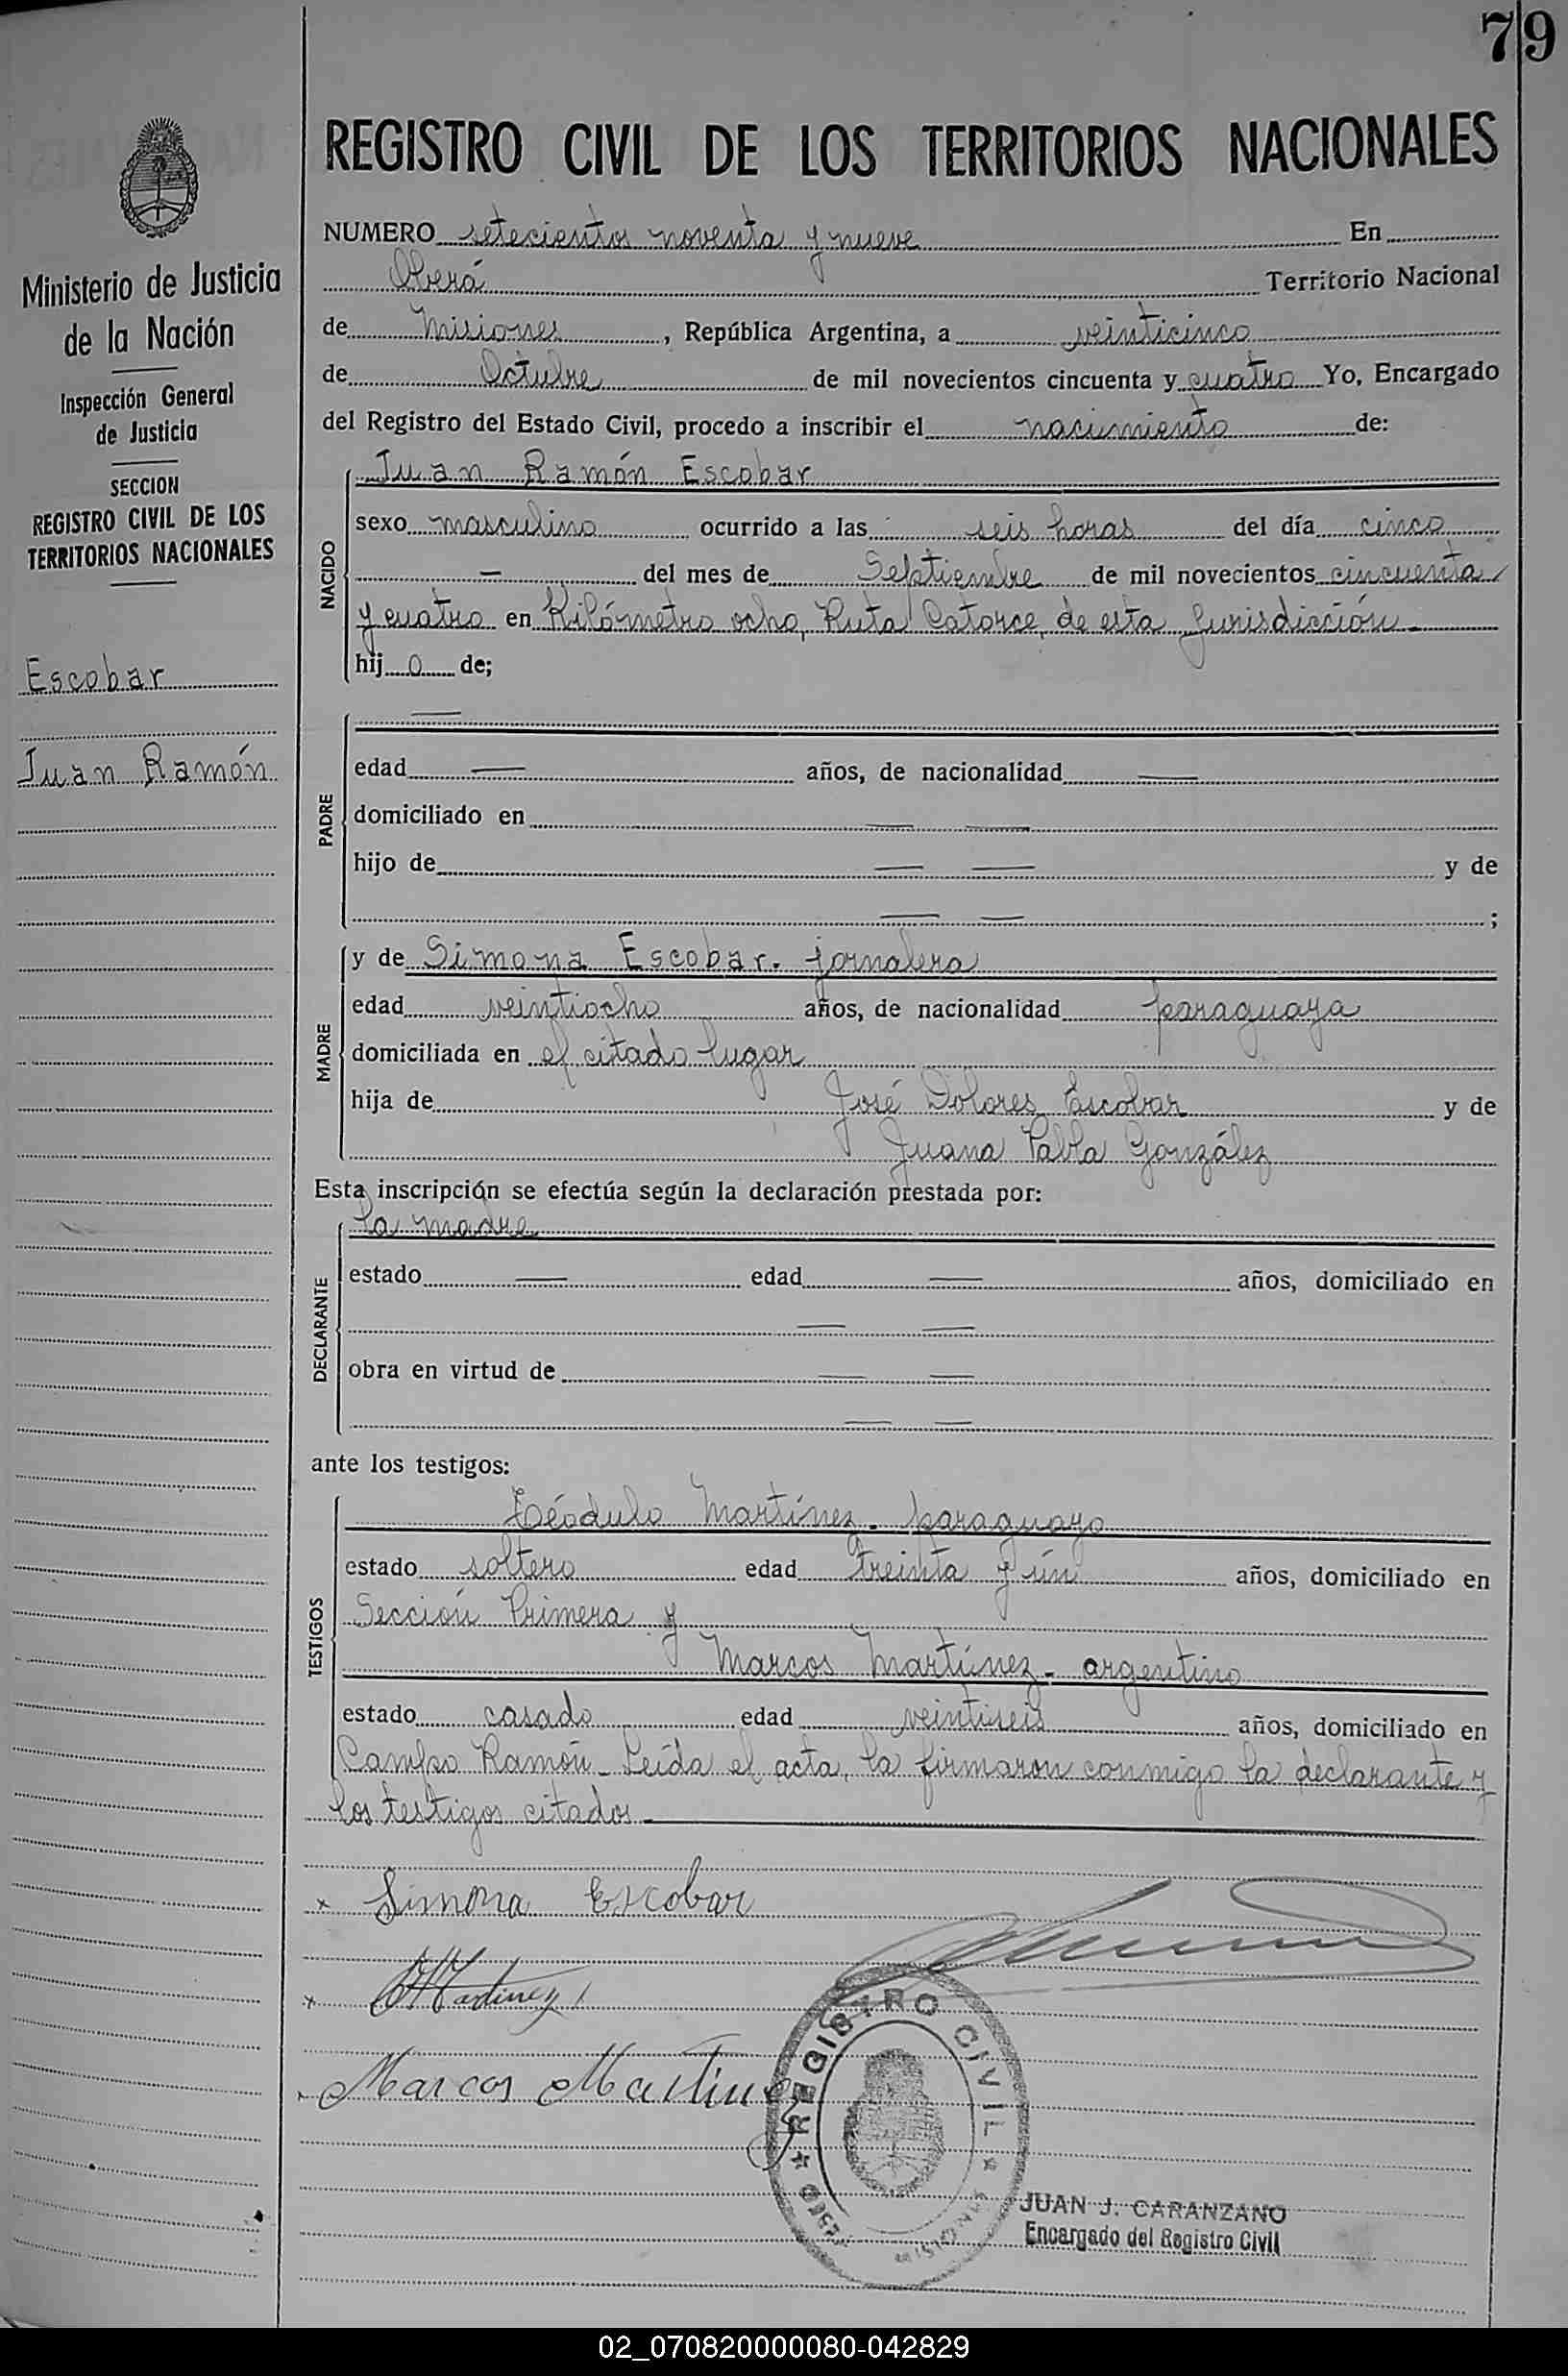 79
REGISTRO CIVIL DE LOS TERRITORIOS NACIONALES
Ministerio de Justicia
de la Nación
Inspección General
de Justicia
SECCION
REGISTRO CIVIL DE LOS
TERRITORIOS NACIONALES
Escobar
Juan Ramón
NUMERO setecientos noventa y nueve En
Oberá Territorio Nacional
de Misiones, República Argentina, a veinticinco
de Octubre de mil novecientos cincuenta y cuatro Yo, Encargado
del Registro del Estado Civil, procedo a inscribir el nacimiento de:
NACIDO
Juan Ramón Escobar
sexo masculino ocurrido a las seis horas del día cinco
— del mes de Septiembre de mil novecientos cincuenta
y cuatro en Kilómetro ocho, Ruta Catorce, de esta Jurisdicción.-
hij o de;
PADRE
—
edad — años, de nacionalidad —
domiciliado en — —
hijo de — — y de
— — ;
MADRE
y de Simona Escobar. jornalera
edad veintiocho años, de nacionalidad paraguaya
domiciliada en el citado lugar
hija de José Dolores Escobar y de
Juana Pabla González
Esta inscripción se efectúa según la declaración prestada por:
DECLARANTE
la madre
estado — edad — años, domiciliado en
— —
obra en virtud de — —
— —
ante los testigos:
TESTIGOS
Teódulo Martínez - paraguayo
estado soltero edad treinta y ún años, domiciliado en
Sección Primera y
Marcos Martínez - argentino
estado casado edad veintiseis años, domiciliado en
Campo Ramón - Leída el acta, la firmaron conmigo la declarante y
los testigos citados.-
x Simona Escobar
x Martinez
Marcos Martinez
REGISTRO CIVIL
JUAN J. CARANZANO
Encargado del Registro Civil
02_070820000080-042829